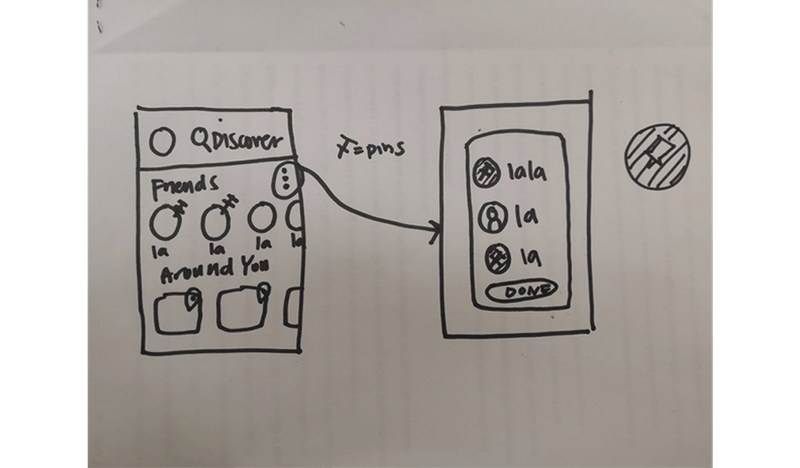 Q Discover
Friends
la la la la
Around You
= pins
lala
la
la
DONE